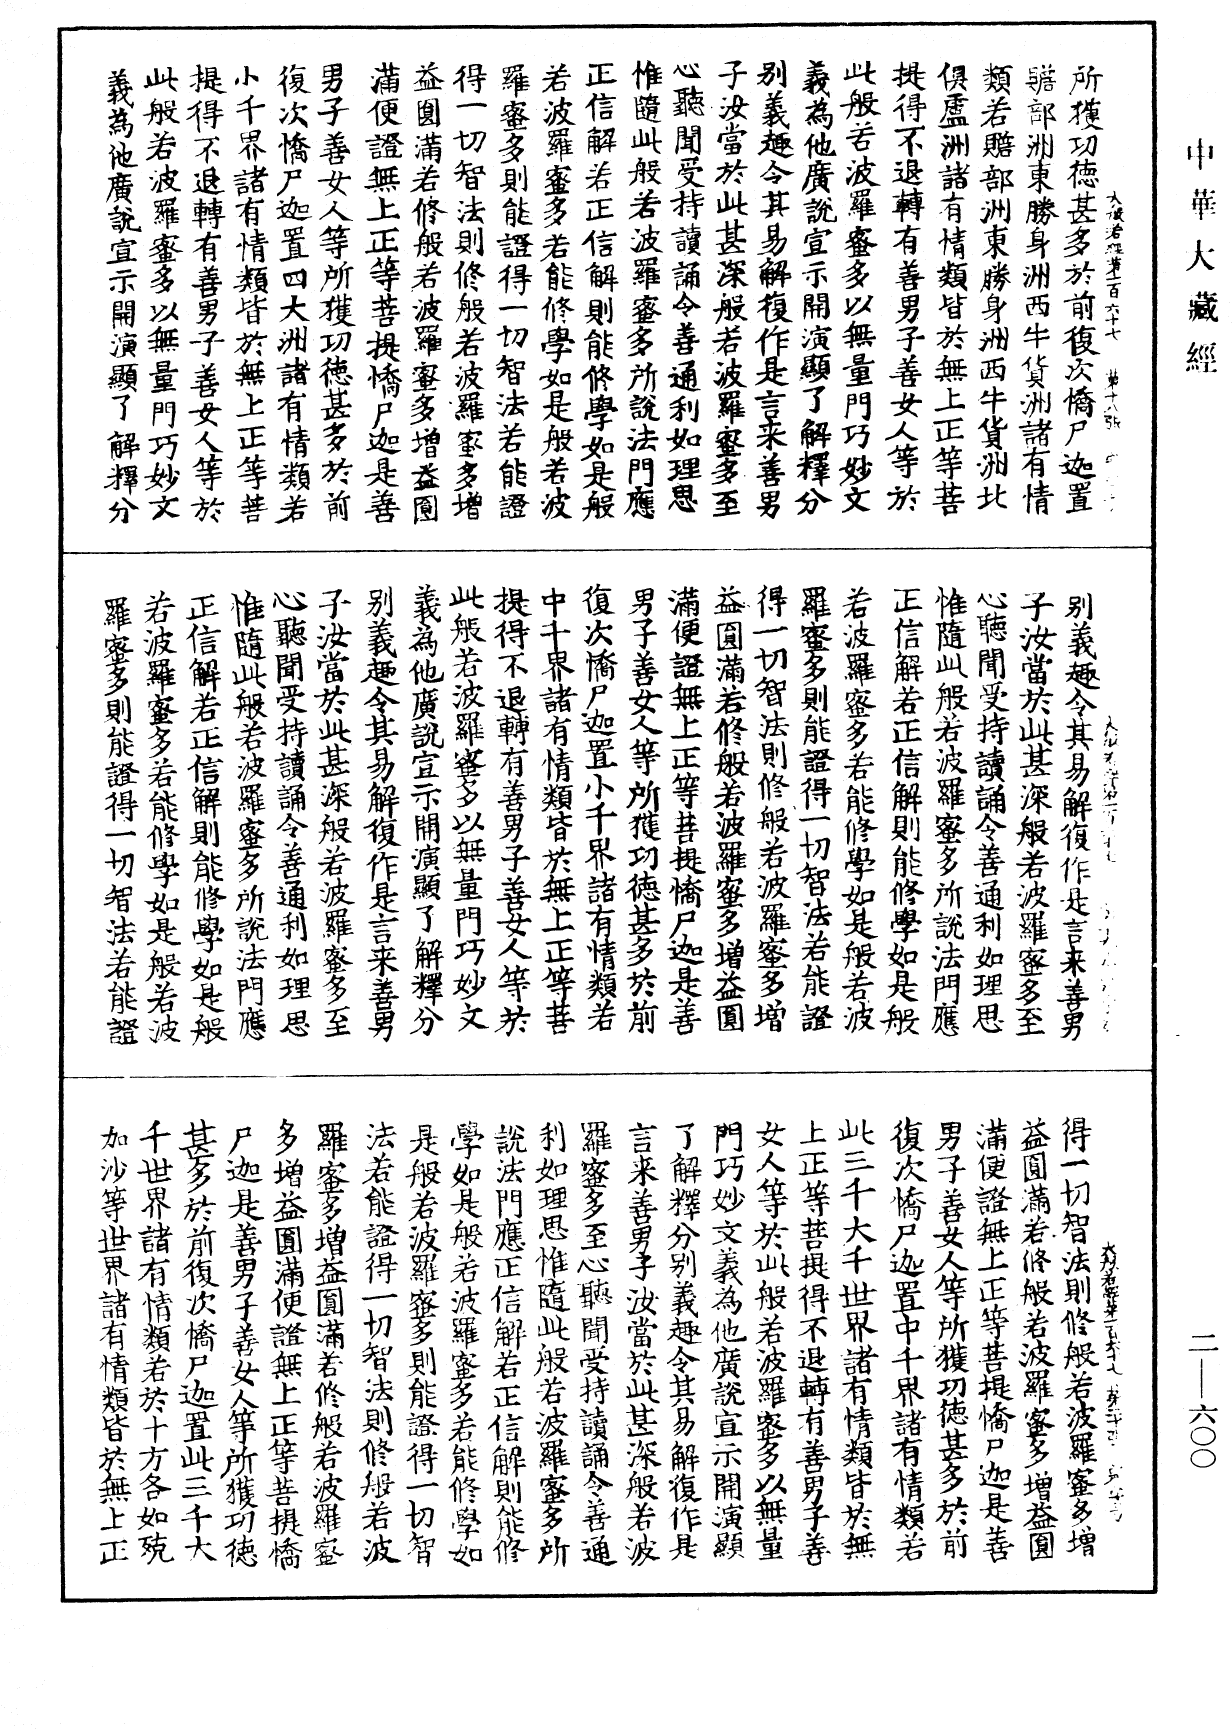 中華大藏經
所獲功德甚多於前復次憍尸迦置
贍部洲東勝身洲西牛貨洲諸有情
類若贍部洲東勝身洲西牛貨洲北
俱盧洲諸有情類皆於無上正等菩
提得不退轉有善男子善女人等於
此般若波羅蜜多以無量門巧妙文
義為他廣說宣示開演顯了解釋分
別義趣令其易解復作是言来善男
子汝當於此甚深般若波羅蜜多至
心聽聞受持讀誦令善通利如理思
惟隨此般若波羅蜜多所說法門應
正信解若正信解則能修學如是般
若波羅蜜多若能修學如是般若波
羅蜜多則能證得一切智法若能證
得一切智法則修般若波羅蜜多增
益圓滿若修般若波羅蜜多增益圓
滿便證無上正等菩提憍尸迦是善
男子善女人等所獲功德甚多於前
復次憍尸迦置四大洲諸有情類若
小千界諸有情類皆於無上正等菩
提得不退轉有善男子善女人等於
此般若波羅蜜多以無量門巧妙文
義為他廣說宣示開演顯了解釋分
大般若經第一百六十七 第十八張
別義趣令其易解復作是言来善男
子汝當於此甚深般若波羅蜜多至
心聽聞受持讀誦令善通利如理思
惟隨此般若波羅蜜多所說法門應
正信解若正信解則能修學如是般
若波羅蜜多若能修學如是般若波
羅蜜多則能證得一切智法若能證
得一切智法則修般若波羅蜜多增
益圓滿若修般若波羅蜜多增益圓
滿便證無上正等菩提憍尸迦是善
男子善女人等所獲功德甚多於前
復次憍尸迦置小千界諸有情類若
中千界諸有情類皆於無上正等菩
提得不退轉有善男子善女人等於
此般若波羅蜜多以無量門巧妙文
義為他廣說宣示開演顯了解釋分
別義趣令其易解復作是言来善男
子汝當於此甚深般若波羅蜜多至
心聽聞受持讀誦令善通利如理思
惟隨此般若波羅蜜多所說法門應
正信解若正信解則能修學如是般
若波羅蜜多若能修學如是般若波
羅蜜多則能證得一切智法若能證
得一切智法則修般若波羅蜜多增
益圓滿若修般若波羅蜜多增益圓
滿便證無上正等菩提憍尸迦是善
男子善女人等所獲功德甚多於前
復次憍尸迦置中千界諸有情類若
此三千大千世界諸有情類皆於無
上正等菩提得不退轉有善男子善
女人等於此般若波羅蜜多以無量
門巧妙文義為他廣說宣示開演顯
了解釋分別義趣令其易解復作是
言来善男子汝當於此甚深般若波
羅蜜多至心聽聞受持讀誦令善通
利如理思惟隨此般若波羅蜜多所
說法門應正信解若正信解則能修
學如是般若波羅蜜多若能修學如
是般若波羅蜜多則能證得一切智
法若能證得一切智法則修般若波
羅蜜多增益圓滿若修般若波羅蜜
多增益圓滿便證無上正等菩提憍
尸迦是善男子善女人等所獲功德
甚多於前復次憍尸迦置此三千大
千世界諸有情類若於十方各如殑
加沙等世界諸有情類皆於無上正
大般若經第一百六十七 第二十張
二—六〇〇